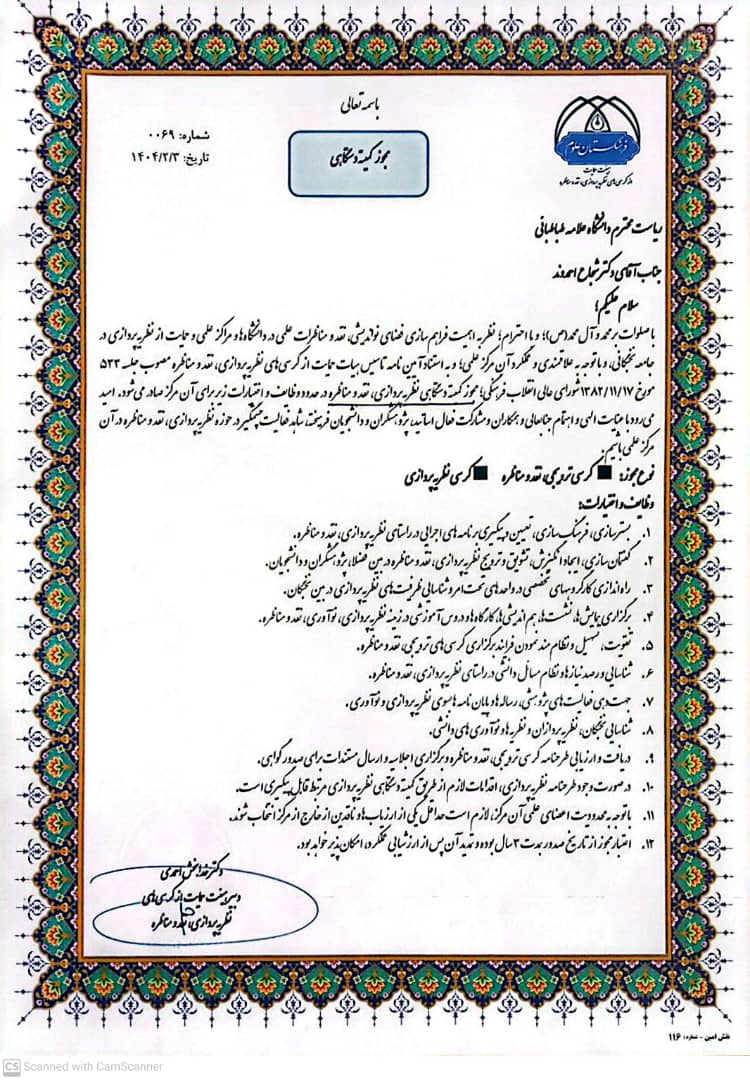 باسمه تعالی
مجوز کمیته دستگاهی
شماره: ۰۰۶۹
تاریخ: ۱۴۰۴/۲/۳
فرهنگستان علوم
هیئت حمایت
از کرسی‌های نظریه‌پردازی، نقد و مناظره
ریاست محترم دانشگاه علامه طباطبائی
جناب آقای دکتر شجاع احمدوند
سلام علیکم؛
با صلوات بر محمد و آل محمد(ص)؛ و با احترام؛ نظر به اهمیت فراهم سازی فضای نواندیشی، نقد و مناظرات علمی در دانشگاه‌ها و مراکز علمی و حمایت از نظریه پردازی در
جامعه نخبگانی، و با توجه به علاقمندی و عملکرد آن مرکز علمی؛ و به استناد آئین نامه تاسیس هیات حمایت از کرسی های نظریه پردازی، نقد و مناظره مصوب جلسه ۵۳۳
مورخ ۱۳۸۲/۱۱/۱۷ شورای عالی انقلاب فرهنگی؛ مجوز کمیته دستگاهی نظریه پردازی، نقد و مناظره در حدود وظایف و اختیارات زیر برای آن مرکز صادر می‌شود. امید
می‌رود با عنایت الهی و اهتمام جنابعالی و همکاران و مشارکت فعال اساتید، پژوهشگران و دانشجویان فرهیخته، شاهد فعالیت چشمگیر در حوزه نظریه پردازی، نقد و مناظره در آن
مرکز علمی باشیم.
نوع مجوز: ■ کرسی ترویجی، نقد و مناظره ■ کرسی نظریه پردازی
وظایف و اختیارات:
۱. بسترسازی، فرهنگ سازی، تعیین و پیگیری برنامه های اجرایی در راستای نظریه پردازی، نقد و مناظره.
۲. گفتمان سازی، ایجاد انگیزش، تشویق و ترویج نظریه پردازی، نقد و مناظره در بین فضلا، پژوهشگران و دانشجویان.
۳. راه اندازی کارگروههای تخصصی در واحدهای تحت امر و شناسایی ظرفیت های نظریه پردازی در بین نخبگان.
۴. برگزاری همایش ها، نشست ها، هم اندیشی ها، کارگاه ها و دروس آموزشی در زمینه نظریه پردازی، نوآوری، نقد و مناظره.
۵. تقویت، تسهیل و نظام مند نمودن فرایند برگزاری کرسی های ترویجی، نقد و مناظره.
۶. شناسایی و رصد نیازها و نظام مسائل دانشی در راستای نظریه پردازی، نقد و مناظره.
۷. جهت دهی فعالیت های پژوهشی، رساله ها و پایان نامه ها بسوی نظریه پردازی و نوآوری.
۸. شناسایی نخبگان، نظریه پردازان و نظریه ها و نوآوری های دانشی.
۹. دریافت و ارزیابی طرحنامه کرسی ترویجی، نقد و مناظره و برگزاری اجلاسیه و ارسال مستندات برای صدور گواهی.
۱۰. در صورت وجود طرحنامه نظریه پردازی، اقدامات لازم از طریق کمیته دستگاهی نظریه پردازی مرتبط قابل پیگیری است.
۱۱. با توجه به محدودیت اعضای علمی آن مرکز، لازم است حداقل یکی از ارزیاب ها و ناقدین از خارج از مرکز انتخاب شوند.
۱۲. اعتبار مجوز از تاریخ صدور بمدت ۳ سال بوده و تمدید آن پس از ارزشیابی عملکرد، امکان پذیر خواهد بود.
دکتر خدابخش احمدی
دبیر هیئت حمایت از کرسی های
نظریه پردازی، نقد و مناظره
نقش امین - شماره: ۱۱۶
CS Scanned with CamScanner